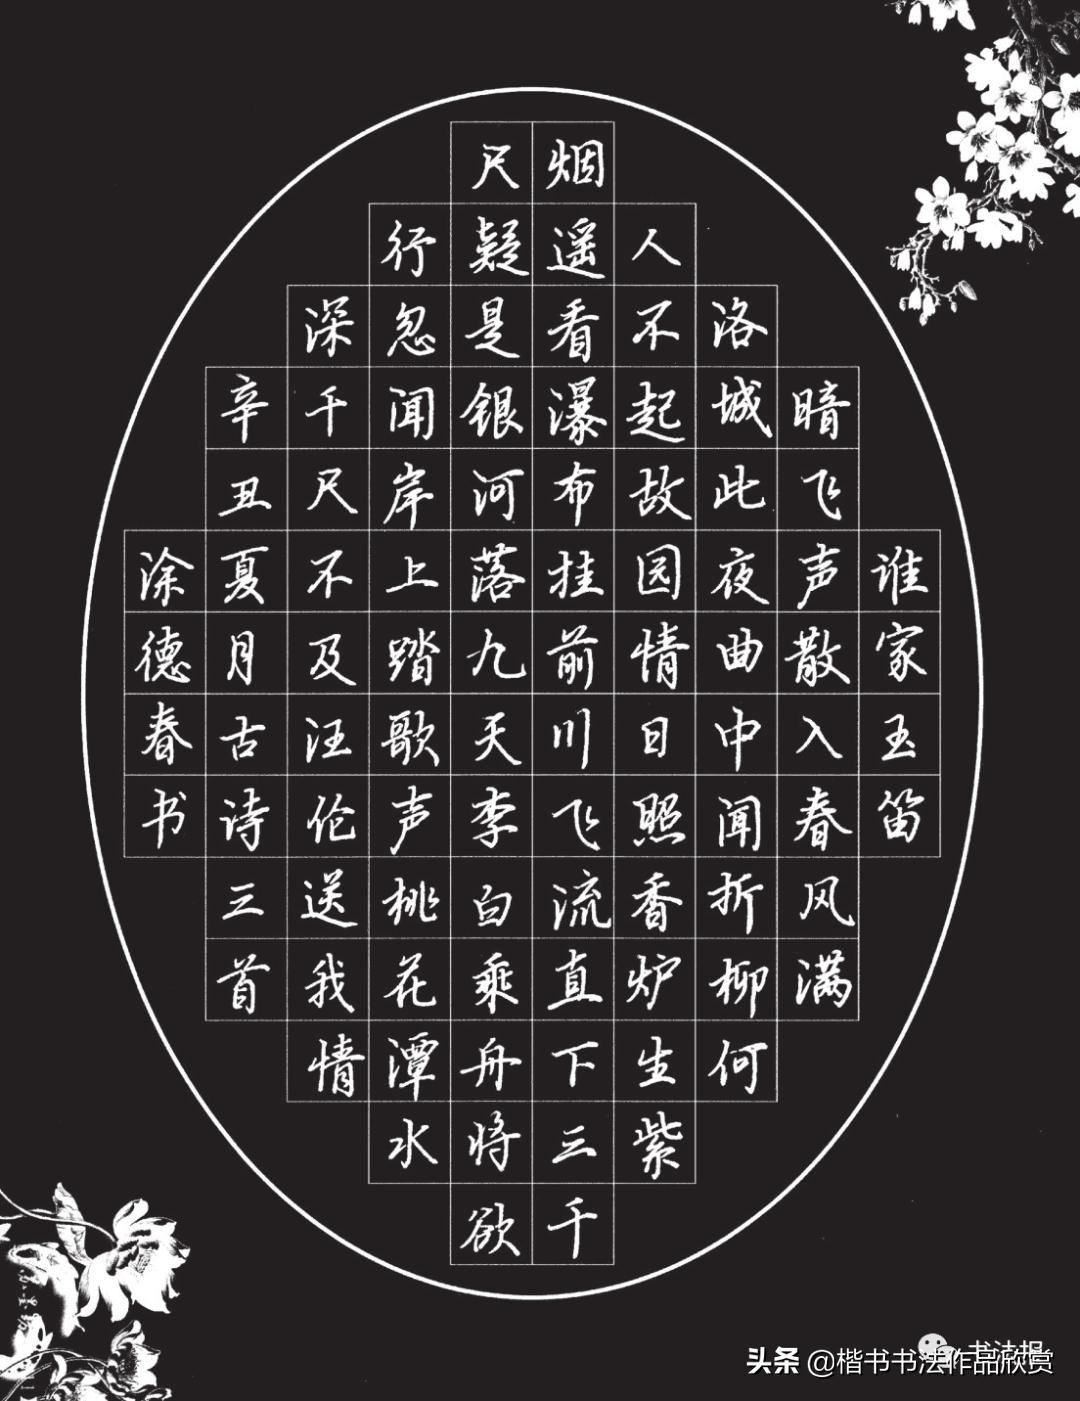 谁家玉笛
暗飞声散入春风满
洛城此夜曲中闻折柳何
人不起故园情日照香炉生紫
烟遥看瀑布挂前川飞流直下三千
尺疑是银河落九天李白乘舟将欲
行忽闻岸上踏歌声桃花潭水
深千尺不及汪伦送我情
辛丑夏月古诗三首
涂德春书
书法报
头条 @楷书书法作品欣赏